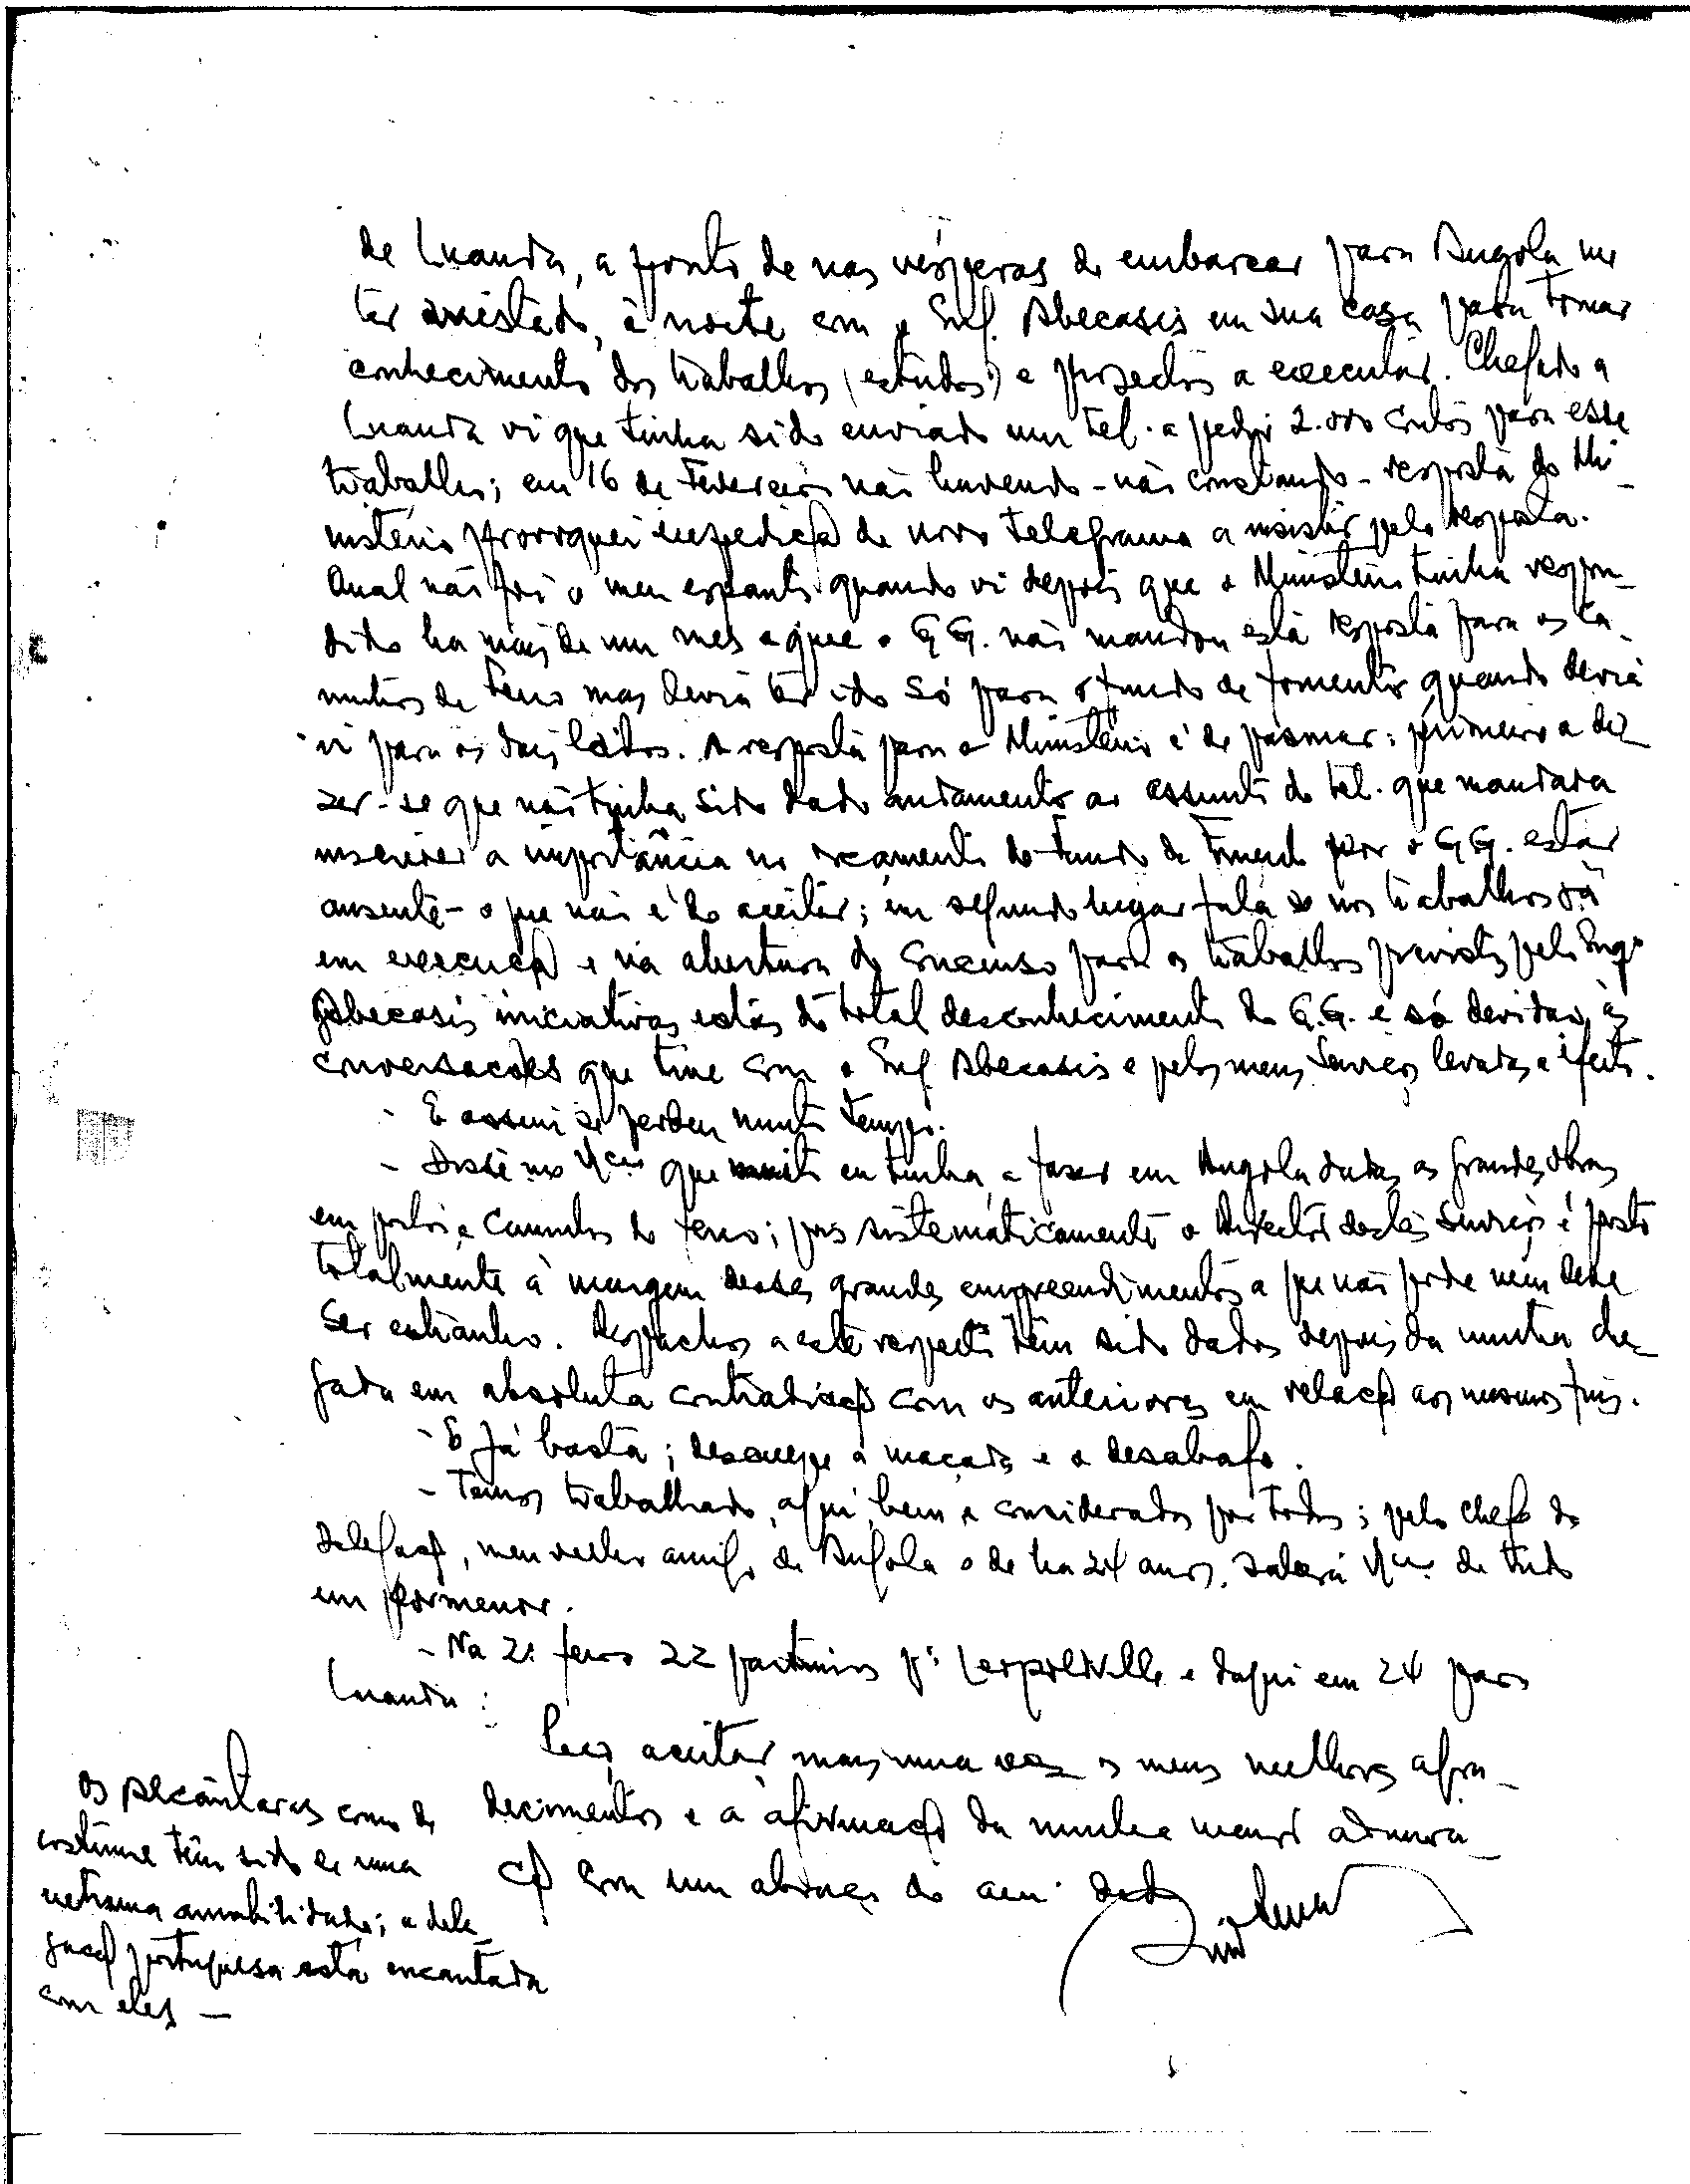 de Luanda, a ponto de nas vésperas de embarcar para Angola me
ter avistado, à noite com o Eng. Abecasis em sua casa para tomar
conhecimento dos trabalhos (estudos) e projectos a executar. Chegado a
Luanda vi que tinha sido enviado um tel. a pedir 2.000 contos para esse
trabalho; em 16 de Fevereiro não havendo - não constando - resposta do Mi-
nistério provoquei expedição de novo telegrama a insistir pela resposta.
Qual não foi o meu espanto quando vi depois que o Ministério tinha respon-
dido ha mais de um mes e que o G.G. não mandou esta resposta para os Ca-
minhos de Ferro mas devia ter ido só para o fundo de fomento quando devia
ir para os dois lados. A resposta para o Ministério é de pasmar: primeiro a di-
zer-se que não tinha sido dado andamento ao assunto do tel. que mandara
inscrever a importância no orçamento do Fundo de Fomento por o G.G. estar
ausente - o que não é de aceitar; em segundo lugar fala-se nos trabalhos já
em execução e na abertura do concurso para os trabalhos previstos pelo Engº
Abecasis iniciativas estas do total desconhecimento do G.G. e só devidas às
conversações que tive com o Eng. Abecasis e pelos meus Serviços levadas a efeito.
- E assim se perdeu muito tempo.
- Disse-me que muito eu tinha a fazer em Angola dadas as grandes obras
em portos e Caminhos de ferro; pois sistemáticamente o Director destes Serviços é posto
totalmente à margem desses grandes empreendimentos a que não pode nem deve
ser estranho. Despachos a este respeito têm sido dados depois da minha che-
gada em absoluta contradição com os anteriores em relação aos mesmos fins.
- E já basta; desculpe a maçada e o desabafo.
- Temos trabalhado aqui bem e considerados por todos; pelo chefe da
Delegação, meu velho amigo de Angola de ha 24 anos, saberá de tudo
em pormenor.
- Na 2ª feira 22 partimos pª Leopoldville e daqui em 24 para
Luanda:
Peço aceitar mais uma vez os meus melhores agra-
decimentos e a afirmação da minha maior admira-
ção com um abraço do
Os Alcântaras como de
costume têm sido de uma
amabilidade; a dele-
gação portuguesa está encantada
com eles -